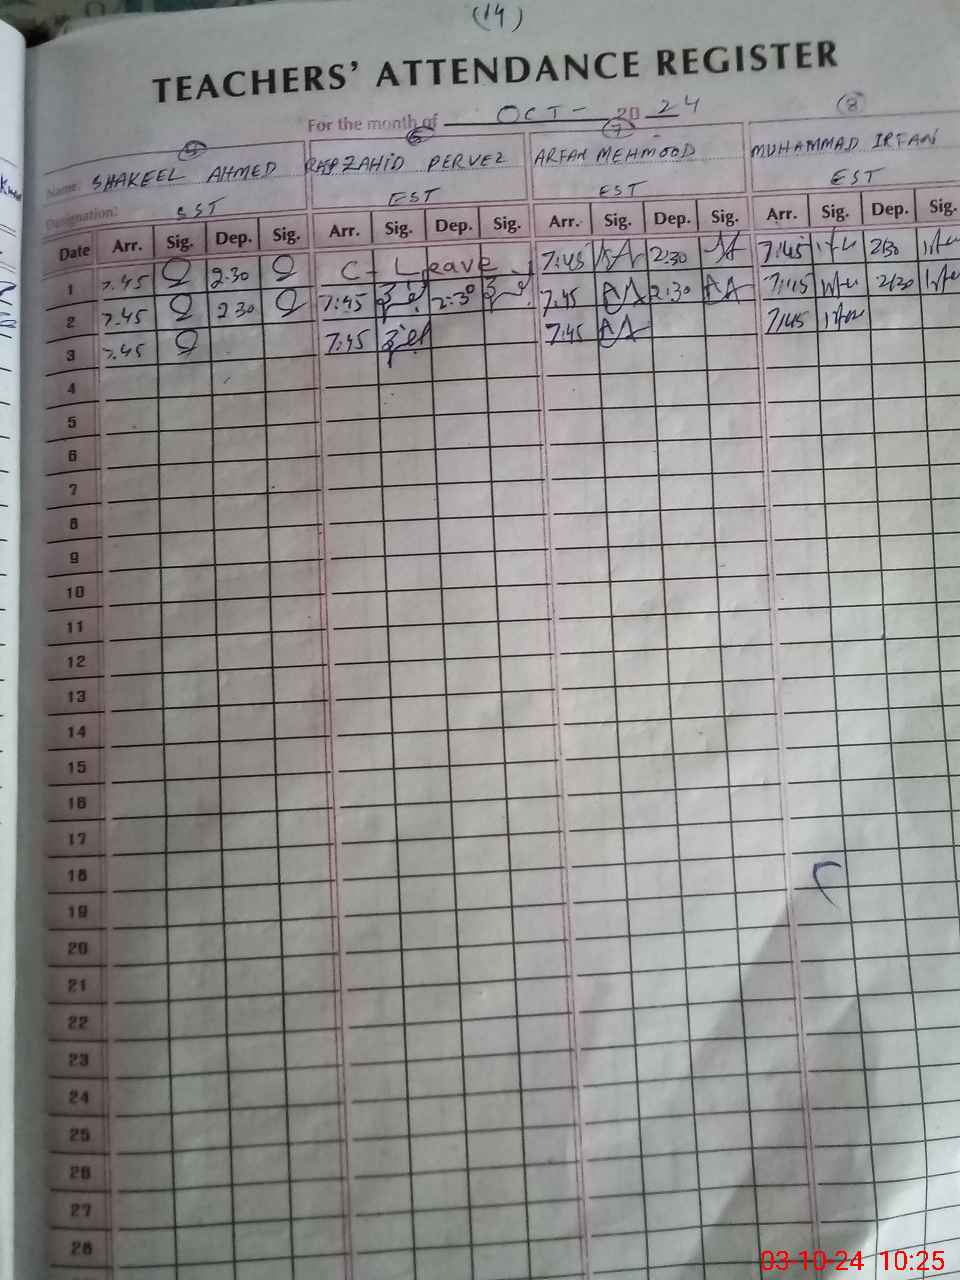 (14)
TEACHERS' ATTENDANCE REGISTER
For the month of OCT- 2024
(5) (6) (7) (8)
Name: SHAKEEL AHMED ZAHID PERVEZ ARFAN MEHMOOD MUHAMMAD IRFAN
Designation: SST EST EST EST
Date Arr. Sig. Dep. Sig. Arr. Sig. Dep. Sig. Arr. Sig. Dep. Sig. Arr. Sig. Dep. Sig.
1 7.45 2.30 C-Leave 7:45 2:30 7:45 2:30
2 7.45 2 30 7:45 2:30 7:45 2:30 7:45 2:30
3 7.45 7:45 7:45 7:45
4
5
6
7
8
9
10
11
12
13
14
15
16
17
18
19
20
21
22
23
24
25
26
27
28
03-10-24 10:25